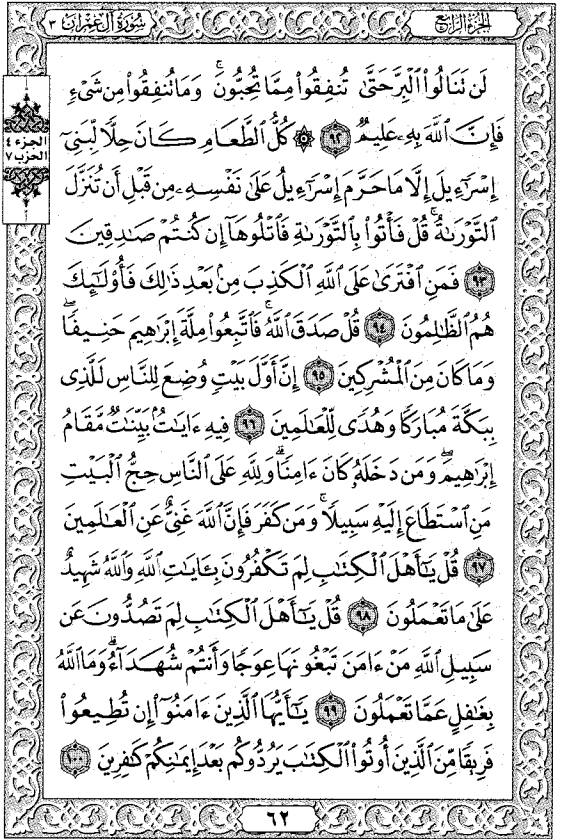 الجزء الرابع
سورة آل عمران ٣
الجزء ٤
الحزب ٧
لَن تَنَالُوا۟ ٱلْبِرَّ حَتَّىٰ تُنفِقُوا۟ مِمَّا تُحِبُّونَ ۚ وَمَا تُنفِقُوا۟ مِن شَىْءٍ
فَإِنَّ ٱللَّهَ بِهِۦ عَلِيمٌ ٩٢ ۞ كُلُّ ٱلطَّعَامِ كَانَ حِلًّا لِّبَنِىٓ
إِسْرَٰٓءِيلَ إِلَّا مَا حَرَّمَ إِسْرَٰٓءِيلُ عَلَىٰ نَفْسِهِۦ مِن قَبْلِ أَن تُنَزَّلَ
ٱلتَّوْرَىٰةُ ۗ قُلْ فَأْتُوا۟ بِٱلتَّوْرَىٰةِ فَٱتْلُوهَآ إِن كُنتُمْ صَٰدِقِينَ
٩٣ فَمَنِ ٱفْتَرَىٰ عَلَى ٱللَّهِ ٱلْكَذِبَ مِنۢ بَعْدِ ذَٰلِكَ فَأُو۟لَٰٓئِكَ
هُمُ ٱلظَّٰلِمُونَ ٩٤ قُلْ صَدَقَ ٱللَّهُ ۗ فَٱتَّبِعُوا۟ مِلَّةَ إِبْرَٰهِيمَ حَنِيفًا ۖ
وَمَا كَانَ مِنَ ٱلْمُشْرِكِينَ ٩٥ إِنَّ أَوَّلَ بَيْتٍ وُضِعَ لِلنَّاسِ لَلَّذِى
بِبَكَّةَ مُبَارَكًا وَهُدًى لِّلْعَٰلَمِينَ ٩٦ فِيهِ ءَايَٰتٌۢ بَيِّنَٰتٌ مَّقَامُ
إِبْرَٰهِيمَ ۖ وَمَن دَخَلَهُۥ كَانَ ءَامِنًا ۗ وَلِلَّهِ عَلَى ٱلنَّاسِ حِجُّ ٱلْبَيْتِ
مَنِ ٱسْتَطَاعَ إِلَيْهِ سَبِيلًا ۚ وَمَن كَفَرَ فَإِنَّ ٱللَّهَ غَنِىٌّ عَنِ ٱلْعَٰلَمِينَ
٩٧ قُلْ يَٰٓأَهْلَ ٱلْكِتَٰبِ لِمَ تَكْفُرُونَ بِـَٔايَٰتِ ٱللَّهِ وَٱللَّهُ شَهِيدٌ
عَلَىٰ مَا تَعْمَلُونَ ٩٨ قُلْ يَٰٓأَهْلَ ٱلْكِتَٰبِ لِمَ تَصُدُّونَ عَن
سَبِيلِ ٱللَّهِ مَنْ ءَامَنَ تَبْغُونَهَا عِوَجًا وَأَنتُمْ شُهَدَآءُ ۗ وَمَا ٱللَّهُ
بِغَٰفِلٍ عَمَّا تَعْمَلُونَ ٩٩ يَٰٓأَيُّهَا ٱلَّذِينَ ءَامَنُوٓا۟ إِن تُطِيعُوا۟
فَرِيقًا مِّنَ ٱلَّذِينَ أُوتُوا۟ ٱلْكِتَٰبَ يَرُدُّوكُم بَعْدَ إِيمَٰنِكُمْ كَٰفِرِينَ ١٠٠
٦٢